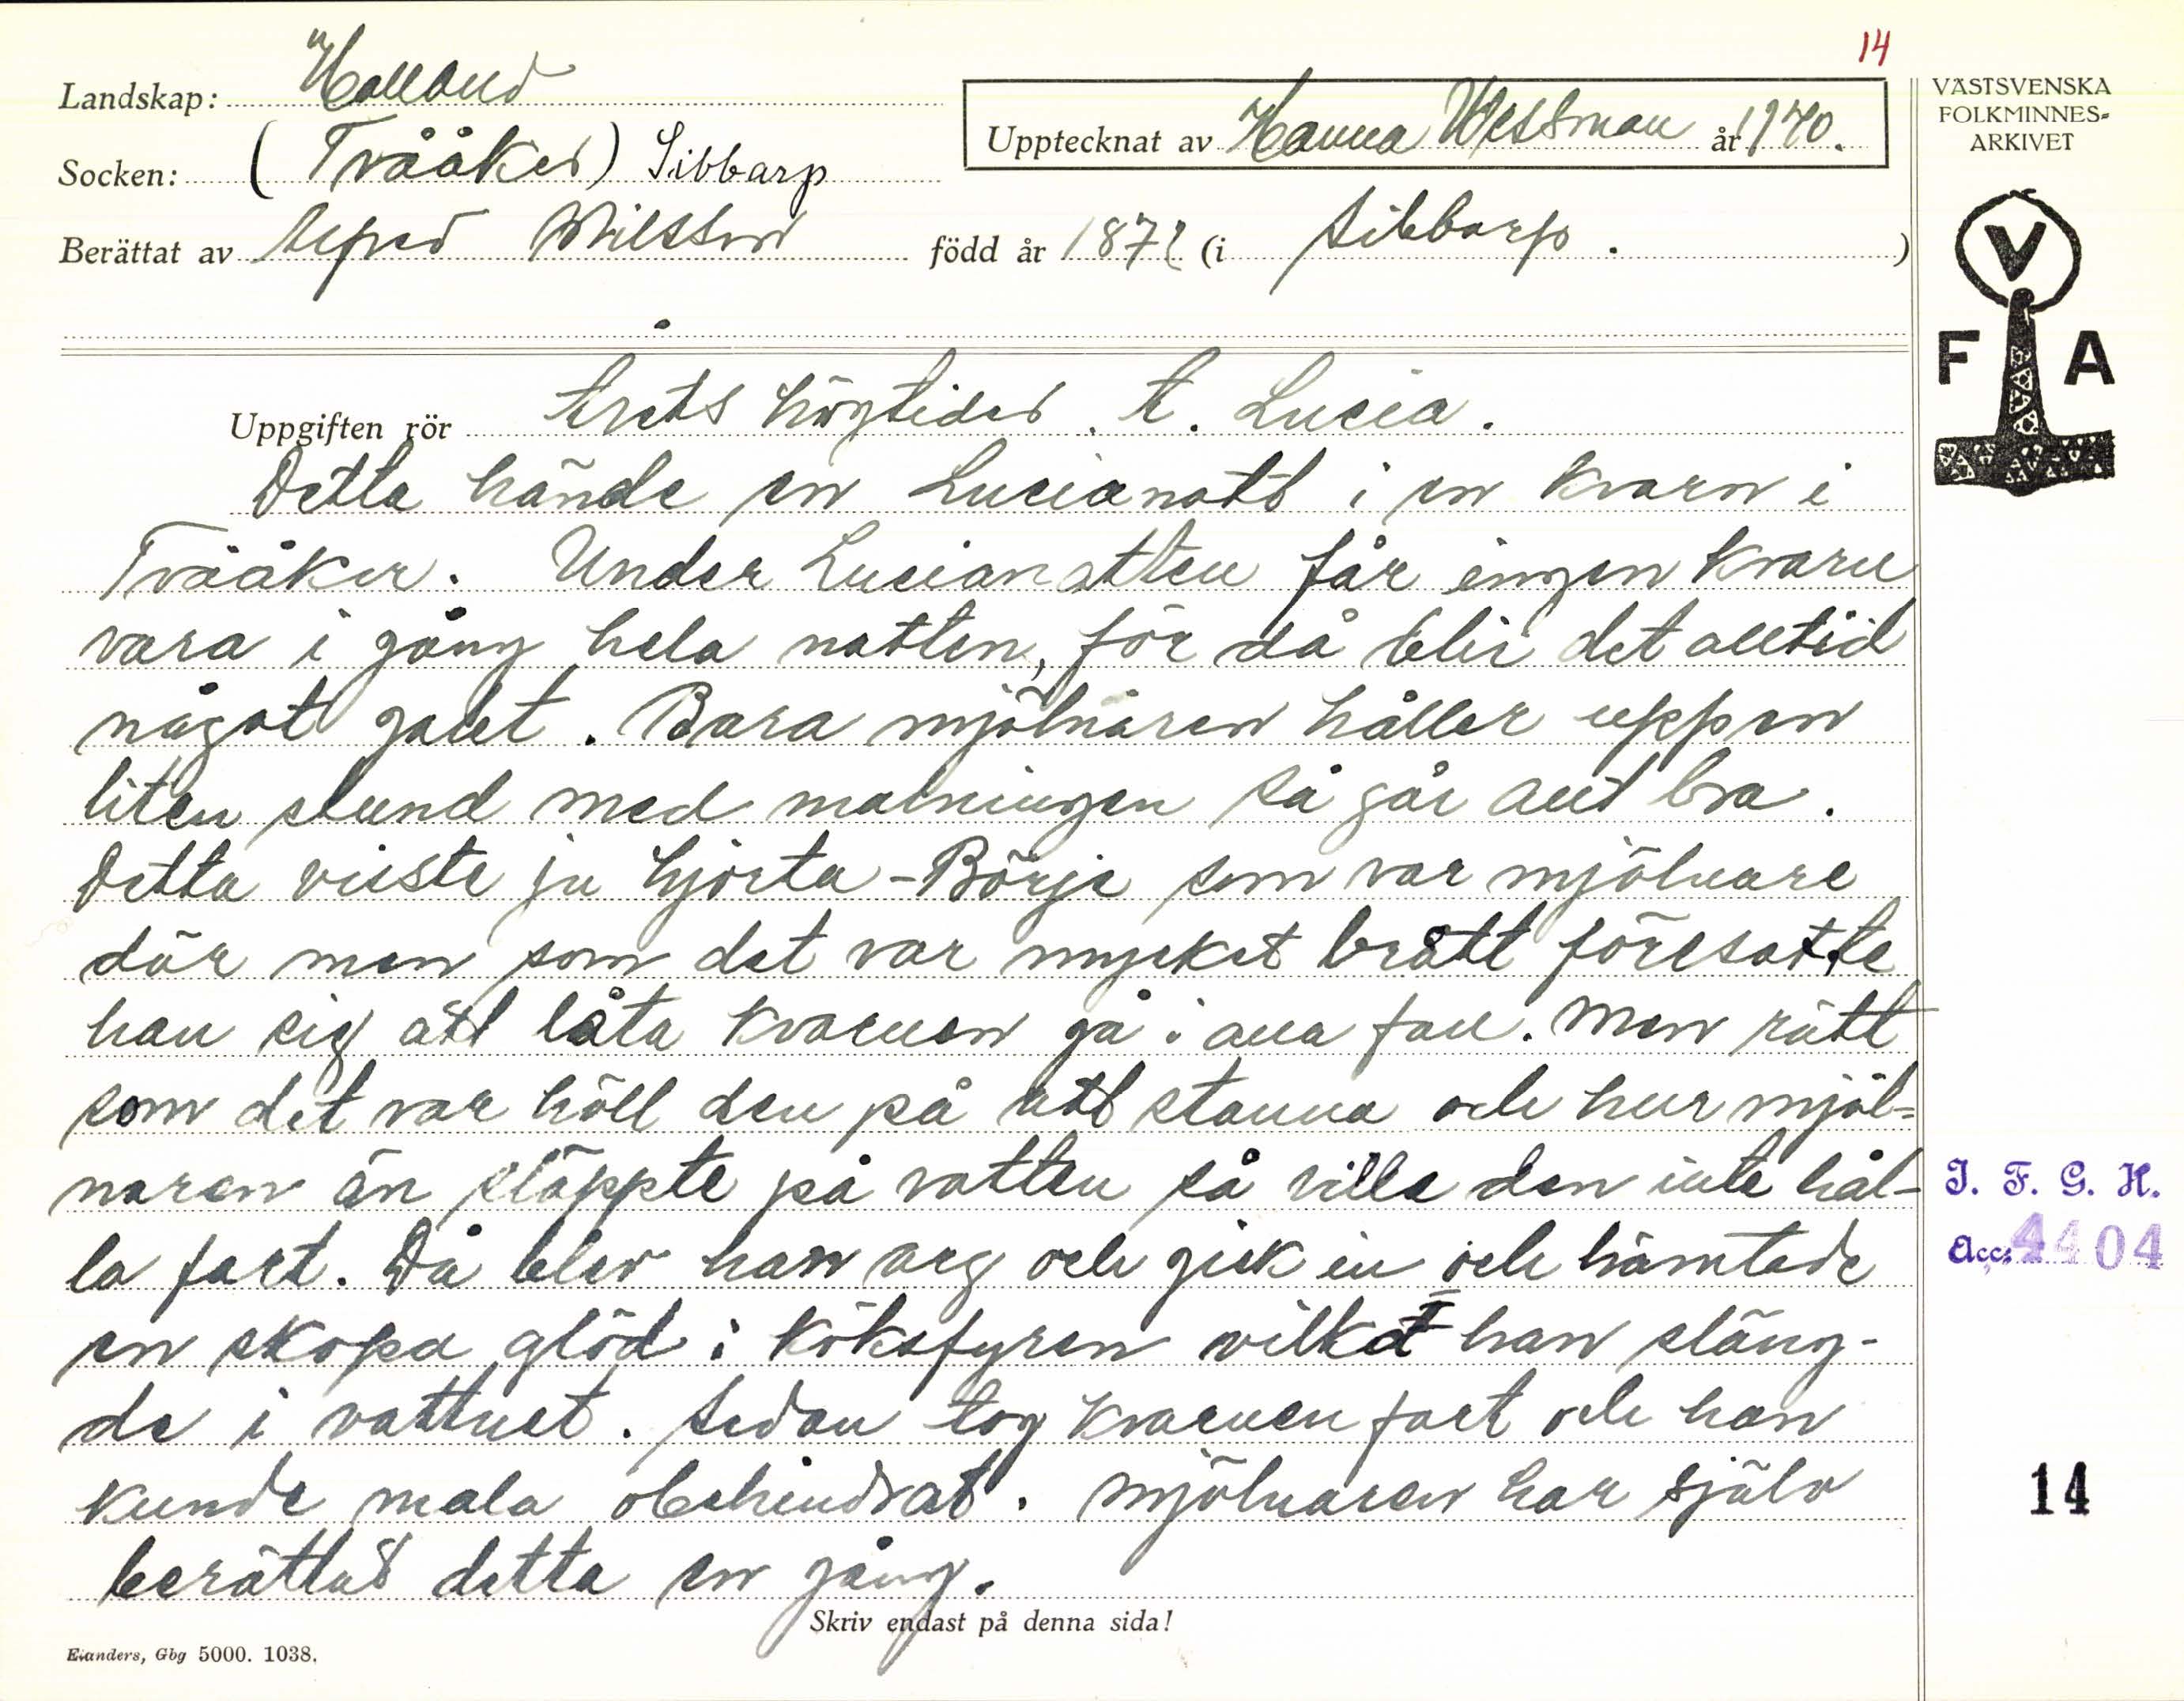 14
Landskap: Halland
Socken: (Tvååker) Sibbarp
Upptecknat av Hanna Wessman år 1940.
Berättat av Alfred Nilsson född år 1872 (i Sibbarp.)
VÄSTSVENSKA
FOLKMINNES-
ARKIVET
V
F A
Uppgiften rör Årets högtider. A. Lucia.
Detta hände en Lucianatt i en kvarn i
Tvååker. Under Lucianatten får ingen kvarn
vara i gång hela natten, för då blir det alltid
något galet. Bara mjölnaren håller upp en
liten stund med malningen så går allt bra.
Detta visste ju Hjorta-Börje som var mjölnare
där men som det var mycket brått föresatte
han sig att låta kvarnen gå i alla fall. Men rätt
som det var höll den på att stanna och hur mjöl=
naren än släppte på vatten så ville den inte hål-
la fart. Då blev han arg och gick in och hämtade
en skopa glöd i köksfyren vilket han släng-
de i vattnet. Sedan tog kvarnen fart och han
kunde mala obehindrat. Mjölnaren har själv
berättat detta en gång.
Skriv endast på denna sida!
Elanders, Gbg 5000. 1038.
I. F. G. H.
Acc. 4404
14